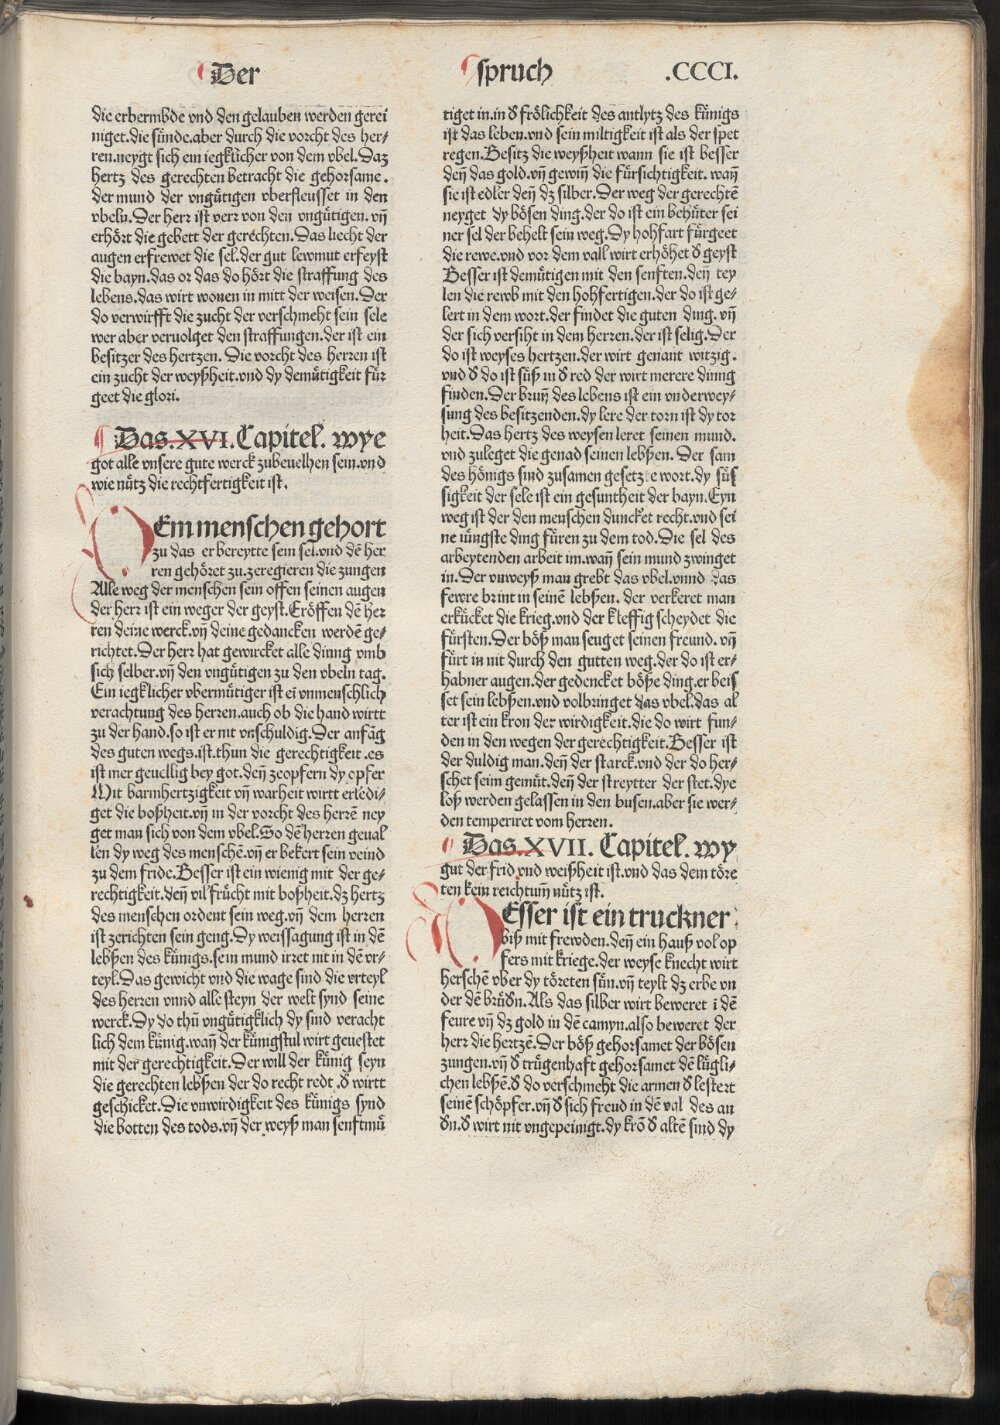 Der
spruch
.CCCI.
die erbermbde vnd den gelauben werden gerei
niget.die sünde.aber durch die vorcht des her⸗
ren.neygt sich ein iegklicher von dem vbel.Daz
hertz des gerechten betracht die gehorsame.
der mund der vngütigen vberfleusset in den
vbeln.Der herr ist verr von den vngütigen.vn̄
erhört die gebett der gerechten.Das liecht der
augen erfrewet die sel.der gut lewmut erfeyst
die bayn.das or das do hört die straffung des
lebens.das wirt wonen in mitt der weisen.Der
do verwirfft die zucht der verschmeht sein sele
wer aber veruolget den straffungen.der ist ein
besitzer des hertzen. Die vorcht des herren ist
ein zucht der weyßheit.vnd dy demütigkeit für
geet die glori.
Das.XVI.Capitel. wye
got alle vnsere gute werck zubeuelhen sein.vnd
wie nütz die rechtfertigkeit ist.
DEm menschen gehort
zu das er bereytte sein sel.vnd dē her
ren gehöret zu.zeregieren die zungen
Alle weg der menschen sein offen seinen augen
der herr ist ein weger der geyst.Eröffen dē her
ren deine werck.vn̄ deine gedancken werdē ge⸗
richtet.Der herr hat gewircket alle dinng vmb
sich selber.vn̄ den vngütigen zu den vbeln tag.
Ein iegklicher vbermütiger ist ei vnmenschlich
verachtung des herren.auch ob die hand wirtt
zu der hand.so ist er nit vnschuldig.Der anfāg
des guten wegs.ist.thun die gerechtigkeit.es
ist mer geuellig bey got.den̄ zeopfern dy opfer
Mit barmhertzigkeit vn̄ warheit wirtt erledi⸗
get die boßheit.vn̄ in der vorcht des herrē ney
get man sich von dem vbel.So dē herren geual
len dy weg des menschē.vn̄ er bekert sein veind
zu dem fride.Besser ist ein wienig mit der ge⸗
rechtigkeit.den̄ vil frücht mit boßheit.dz hertz
des menschen ordent sein weg.vn̄ dem herren
ist zerichten sein geng.Dy weissagung ist in dē
lebßen des künigs.sein mund irret nit in dē vr⸗
teyl.Das gewicht vnd die wage sind die vrteyl
des herren vnnd alle steyn der welt synd seine
werck.Dy do thū vngütigklich dy sind veracht
lich dem künig.wan̄ der künigstul wirt geuestet
mit der gerechtigkeit.Der will der künig seyn
die gerechten lebßen der do recht redt.d̕ wirtt
geschicket.Die vnwirdigkeit des künigs synd
die botten des tods.vn̄ der weyß man senftmü
tiget in.in d̕ frölichkeit des antlytz des künigs
ist das leben.vnd sein miltigkeit ist als der spet
regen.Besitz die weyßheit wann sie ist besser
den̄ das gold.vn̄ gewin̄ die fürsichtigkeit. wan̄
sie ist edler den̄ dz silber.Der weg der gerechtē
neyget dy bösen ding.der do ist ein behüter sei
ner sel der behelt sein weg.Dy hohfart fürgeet
die rewe.vnd vor dem vall wirt erhöhet d̕ geyst
Besser ist demütigen mit den senften.den̄ tey
len die rewb mit den hohfertigen.der do ist ge⸗
lert in dem wort.der findet die guten ding. vn̄
der sich versiht in dem herren.der ist selig.Der
do ist weyses hertzen.der wirt genant witzig.
vnd d̕ do ist süß in d̕ red der wirt merere dinng
finden.Der brun̄ des lebens ist ein vnderwey⸗
sung des besitzenden.dy lere der torn ist dy tor
heit.Das hertz des weysen leret seinen mund.
vnd zuleget die genad seinen lebßen. Der sam
des hönigs sind zusamen gesetzte wort.dy süs
sigkeit der sele ist ein gesuntheit der bayn.Eyn
weg ist der den menschen duncket recht.vnd sei
ne iüngste ding füren zu dem tod. Die sel des
arbeytenden arbeit im.wan̄ sein mund zwinget
in.Der vnweyß man grebt das vbel.vnnd das
fewre brint in seinē lebßen. der verkeret man
erkücket die krieg.vnd der kleffig scheydet die
fürsten.Der böß man seuget seinen freund. vn̄
fürt in nit durch den gutten weg.der do ist er⸗
habner augen.der gedencket böße ding.er beis
set sein lebßen.vnd volbringet das vbel.das al
ter ist ein kron der wirdigkeit.die do wirt fun⸗
den in den wegen der gerechtigkeit.Besser ist
der duldig man.den̄ der starck.vnd der do her⸗
schet seim gemüt.den̄ der streytter der stet.dye
loß werden gelassen in den busen.aber sie wer⸗
den temperiret vom herren.
Das.XVII. Capitel. wy
gut der frid vnd weißheit ist.vnd das dem töre
ten kein reichtum̄ nütz ist.
BEsser ist ein truckner
biß mit frewden.den̄ ein hauß vol op
fers mit kriege.der weyse knecht wirt
herschē vber dy töreten sün.vn̄ teylt dz erbe vn
der dē brüd̕n.Als das silber wirt beweret ī dē
feure vn̄ dz gold in dē camyn.also beweret der
herr die hertzē.Der böß gehorsamet der bösen
zungen.vn̄ d̕ trügenhaft gehorsamet dē lügli⸗
chen lebßē.d̕ do verschmeht die armen d̕ lestert
seinē schöpfer.vn̄ d̕ sich freud in dē val des an
d̕n.d̕ wirt nit vngepeinigt.dy krō d̕ altē sind dy